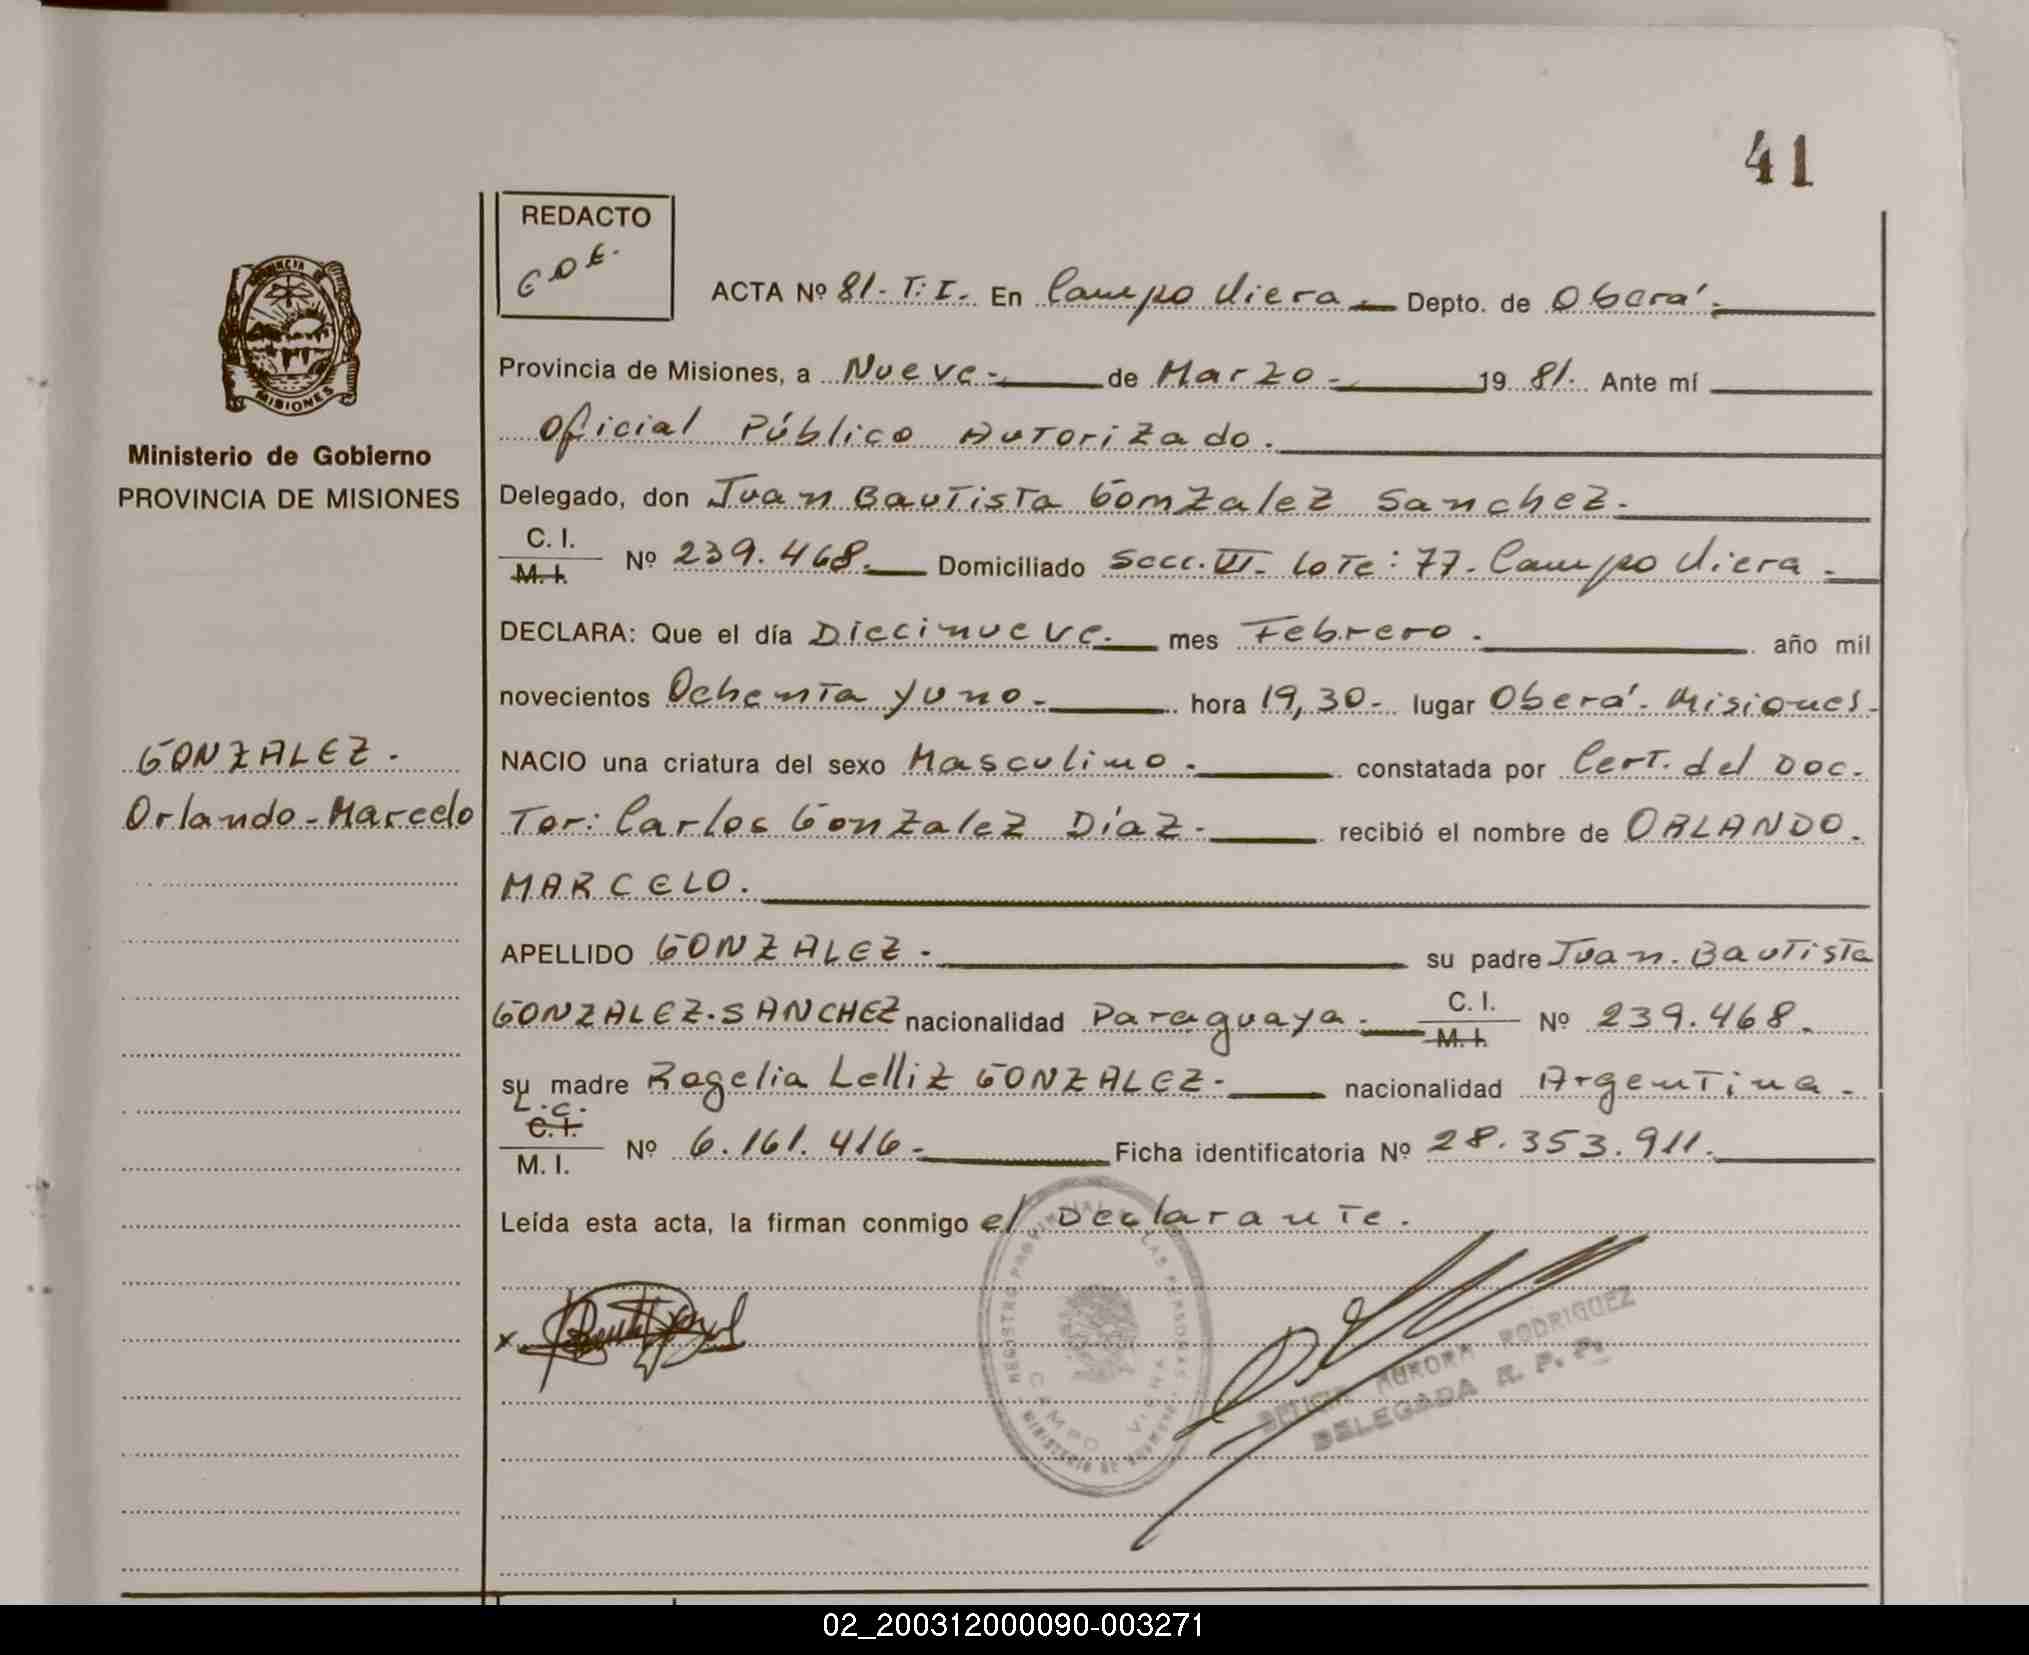 41
REDACTO
G D E.
ACTA Nº 81. T. I. En Campo Viera. Depto. de Oberá.
PROVINCIA DE
MISIONES
Provincia de Misiones, a Nueve. de Marzo. 19 81. Ante mí
Oficial Público Autorizado.
Ministerio de Gobierno
PROVINCIA DE MISIONES
Delegado, don Juan Bautista Gonzalez Sanchez.
C. I.
M. I. Nº 239.468. Domiciliado Secc. VI. Lote: 77. Campo Viera.
DECLARA: Que el día Diecinueve. mes Febrero. año mil
novecientos Ochenta y uno. hora 19,30. lugar Oberá. Misiones.
GONZALEZ.
NACIO una criatura del sexo Masculino. constatada por Cert. del Doc.
Orlando-Marcelo
Tor: Carlos Gonzalez Díaz. recibió el nombre de ORLANDO.
MARCELO.
APELLIDO GONZALEZ. su padre Juan. Bautista
GONZALEZ. SANCHEZ nacionalidad Paraguaya. C. I. M. I. Nº 239.468.
su madre Rogelia Lelliz GONZALEZ. nacionalidad Argentina.
L. C.
C. I.
M. I. Nº 6.161.416. Ficha identificatoria Nº 28.353.911.
Leída esta acta, la firman conmigo el Declarante.
x
REGISTRO PROVINCIAL DE LAS PERSONAS
CAMPO VIERA
MINISTERIO DE GOBIERNO
AURORA RODRIGUEZ
DELEGADA R. P. P.
02_200312000090-003271